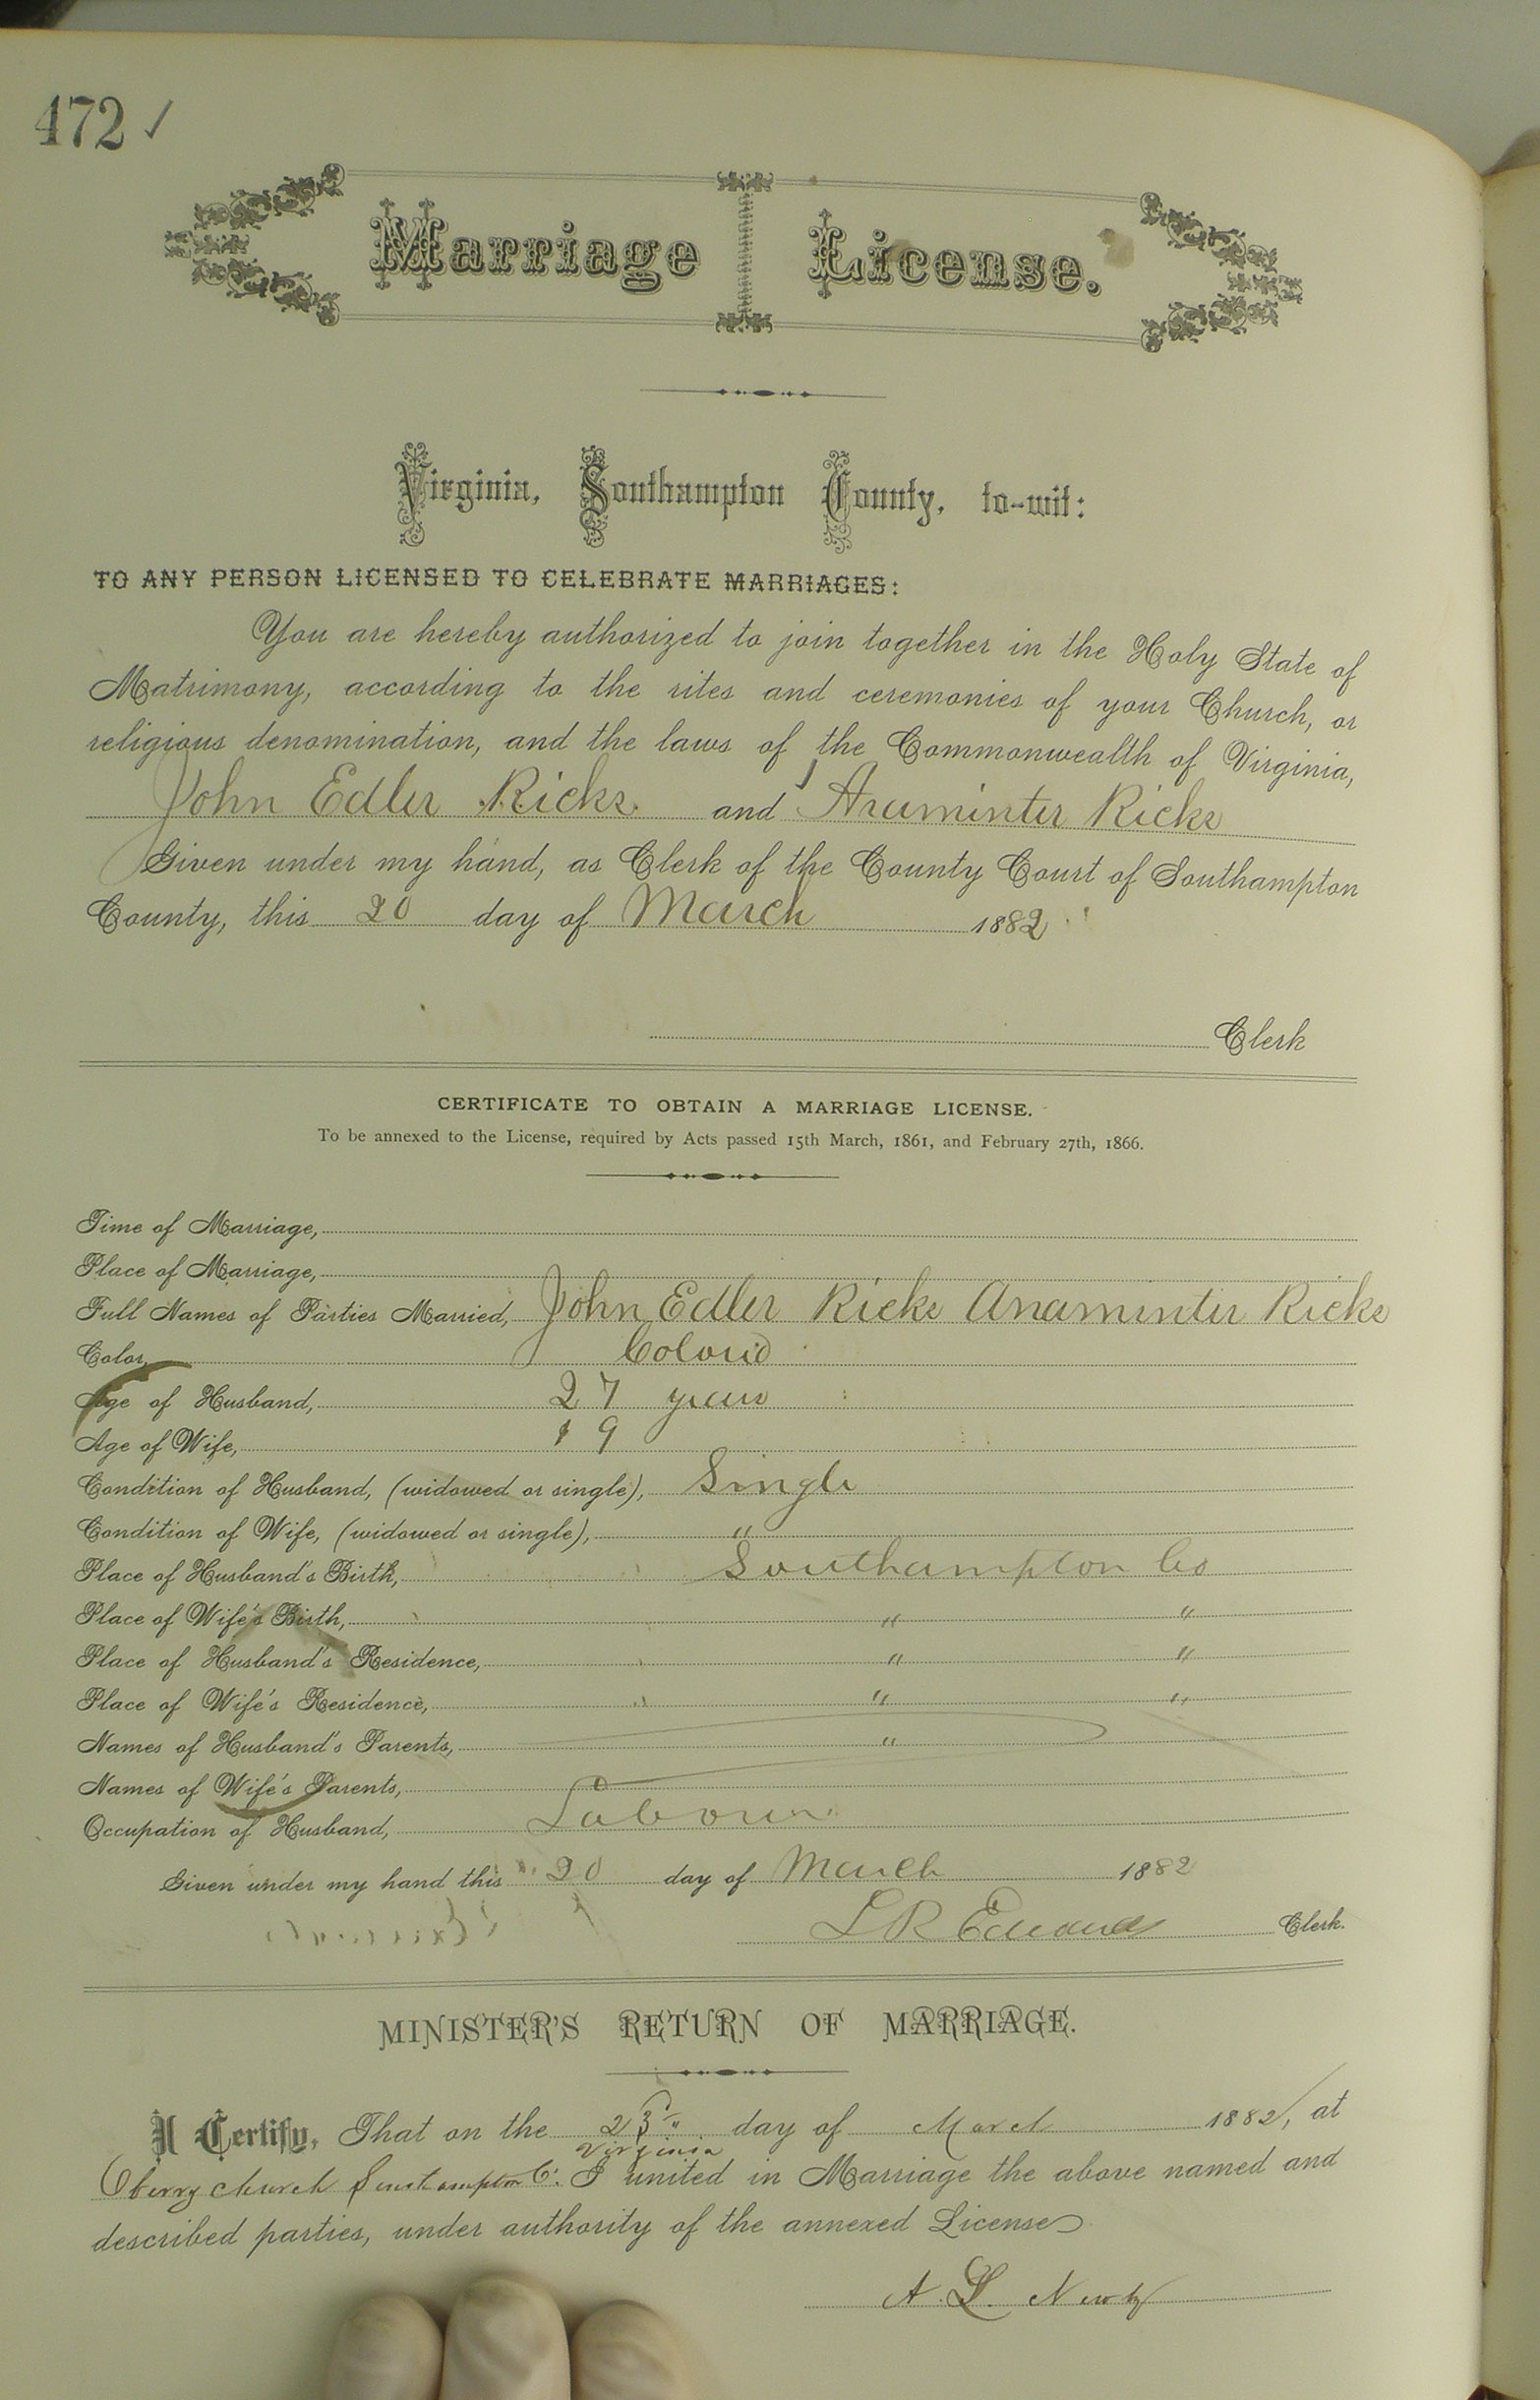 472 ✓
Marriage License.
Virginia, Southampton County, to-wit:
TO ANY PERSON LICENSED TO CELEBRATE MARRIAGES:
You are hereby authorized to join together in the Holy State of
Matrimony, according to the rites and ceremonies of your Church, or
religious denomination, and the laws of the Commonwealth of Virginia,
John Edler Ricks and Araminter Ricks
Given under my hand, as Clerk of the County Court of Southampton
County, this 20 day of March 1882
Clerk
CERTIFICATE TO OBTAIN A MARRIAGE LICENSE.
To be annexed to the License, required by Acts passed 15th March, 1861, and February 27th, 1866.
Time of Marriage,
Place of Marriage,
Full Names of Parties Married, John Edler Ricks Anaminter Ricks
Color, Colored
Age of Husband, 27 years
Age of Wife, 19
Condition of Husband, (widowed or single), Single
Condition of Wife, (widowed or single), "
Place of Husband's Birth, Southampton Co
Place of Wife's Birth, " "
Place of Husband's Residence, " "
Place of Wife's Residence, " "
Names of Husband's Parents, "
Names of Wife's Parents,
Occupation of Husband, Laborer
Given under my hand this 20 day of March 1882
L R Edwards Clerk.
MINISTER'S RETURN OF MARRIAGE.
I Certify, That on the 23" day of March 1882, at
Virginia
Oberry church Southampton Co. I united in Marriage the above named and
described parties, under authority of the annexed License
A. L. Newby